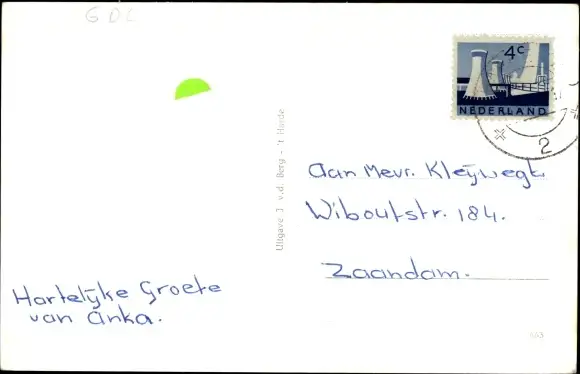 GDL
4c
NEDERLAND
2
Uitgave J v.d. Berg - 't Harde
Aan Mevr. Kleijwegt
Wiboutstr. 184.
Zaandam.
Hartelijke Groete
van Anka.